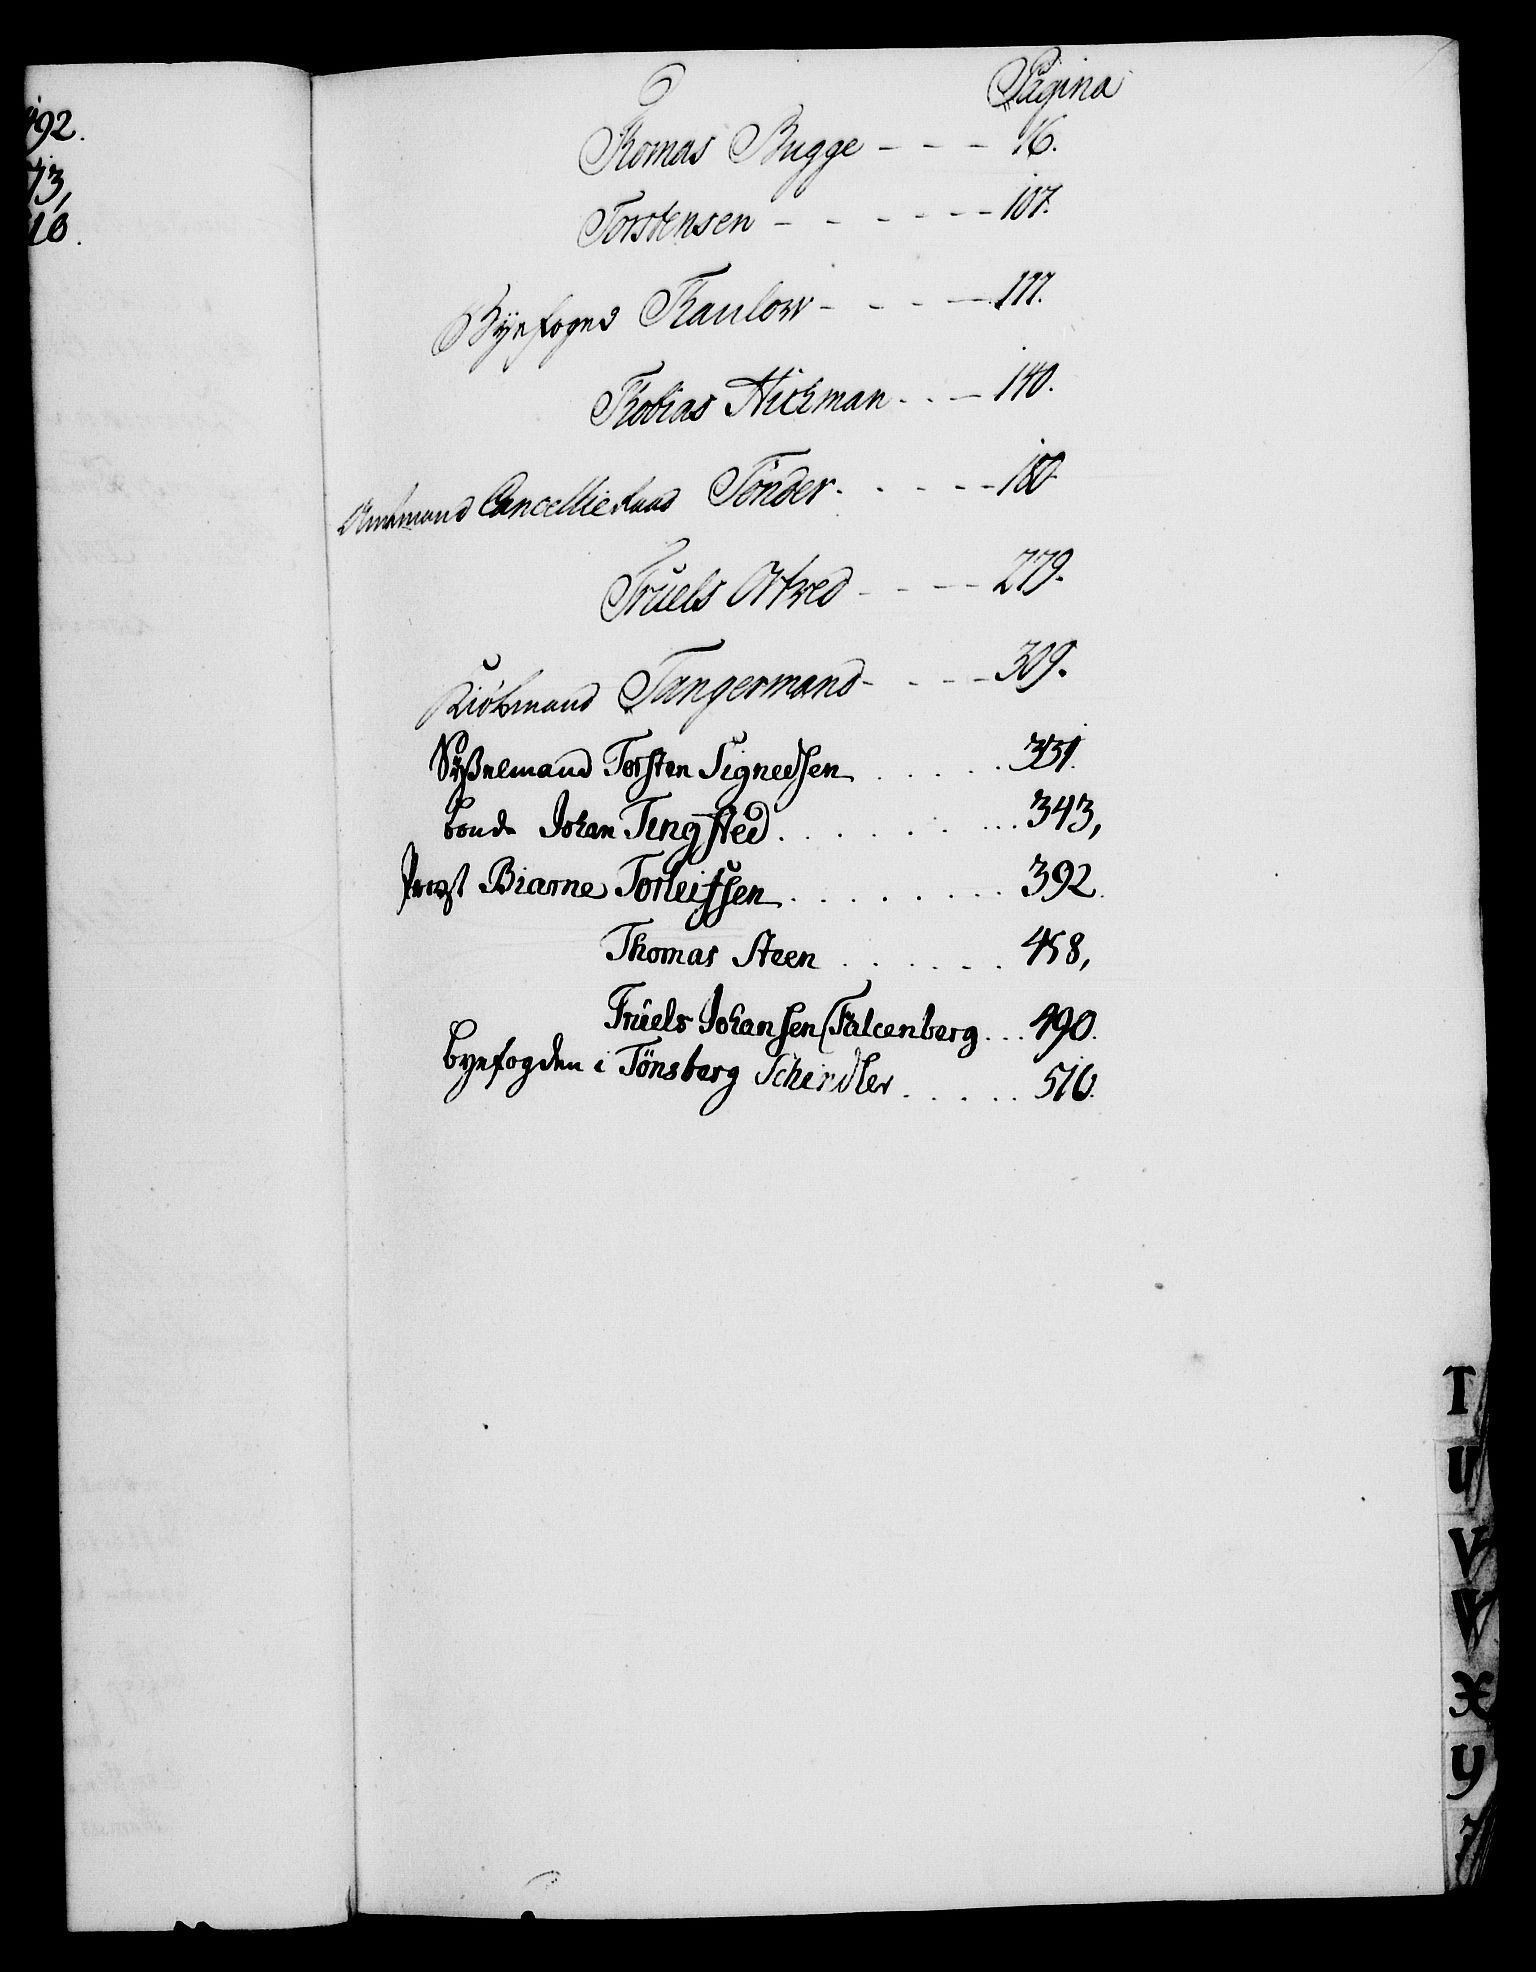 492.
73,
10.
Pagina
Thomas Bugge - - - 16.
Torstensen - - - - - - 107.
Byefoged Thaulow - - - - 111.
Thobias Hickman - - - 140.
Amtmand Cancellie Raad Tönder - - - - - 180.
Truels Ortved - - - - 279.
Kiöbmand Tangermand - - - - 309.
Sysselmand Torsten Signedsen . . . . . 331.
bonde Johan Tengsted . . . . . . . 343,
Provst Biarne Torleifssen . . . . . . . . 392.
Thomas Steen . . . . . . 458,
Truels Johansen (Falcenberg . . . 490.
byefogden i Tönsberg Schindler . . . . . 516.
T
U
V
W
X
Y